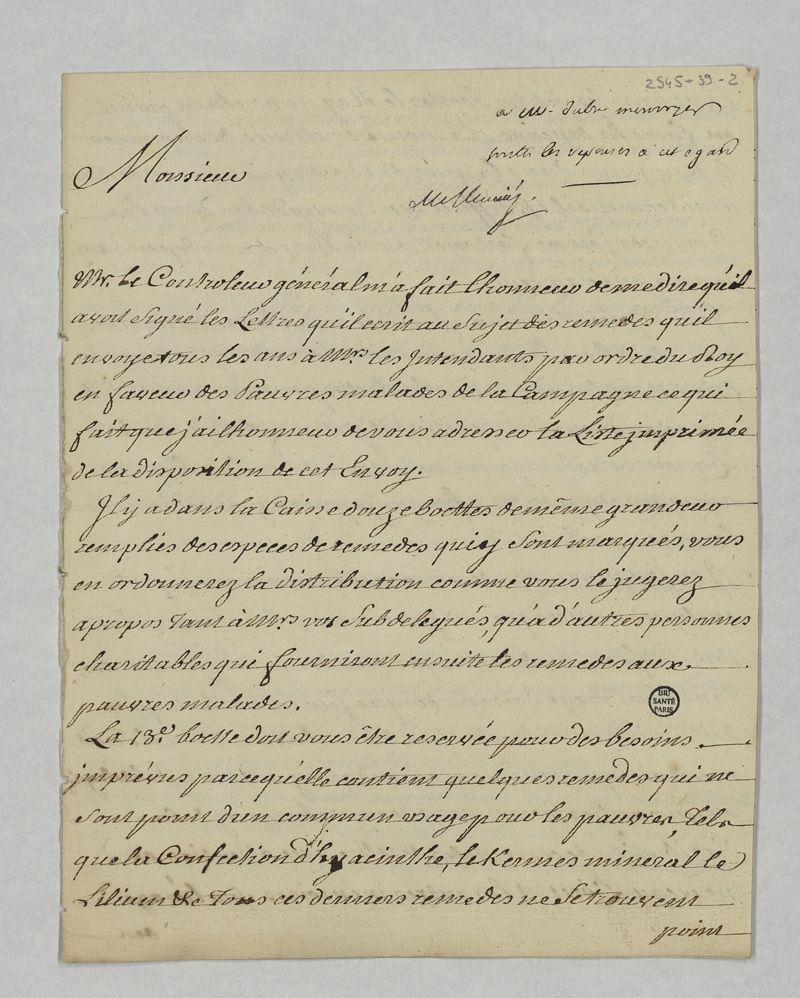 2545-39-2
a M.
les reponses a cet egard
Monsieur
Mr. le Controleur général m'a fait l'honneur de me dire qu'il
avoit signé les Lettres qu'il ecrit au sujet des remedes qu'il
envoye tous les ans à Mrs les Intendants par ordre du Roy
en faveur des Pauvres malades de la Campagne ce qui
fait que j'ai l'honneur de vous adresser la Liste imprimée
de la disposition de cet Envoy.
Il y a dans la Caisse douze boettes de même grandeur
remplies des especes de remedes qui y sont marqués, vous
en ordonnerez la distribution comme vous le jugerez
apropos tant à Mrs vos Subdelegués, qu'à d'autres personnes
charitables qui fourniront ensuite les remedes aux
pauvres malades.
BIU
SANTÉ
PARIS
La 13.e boette doit vous être reservée pour des besoins
imprévus parcequ'elle contient quelques remedes qui ne
sont point d'un commun usage pour les pauvres, Tels
que la Confection d'hyacinthe, le Kermes mineral le
Lilium &c Tous ces derniers remedes ne se trouvent
point